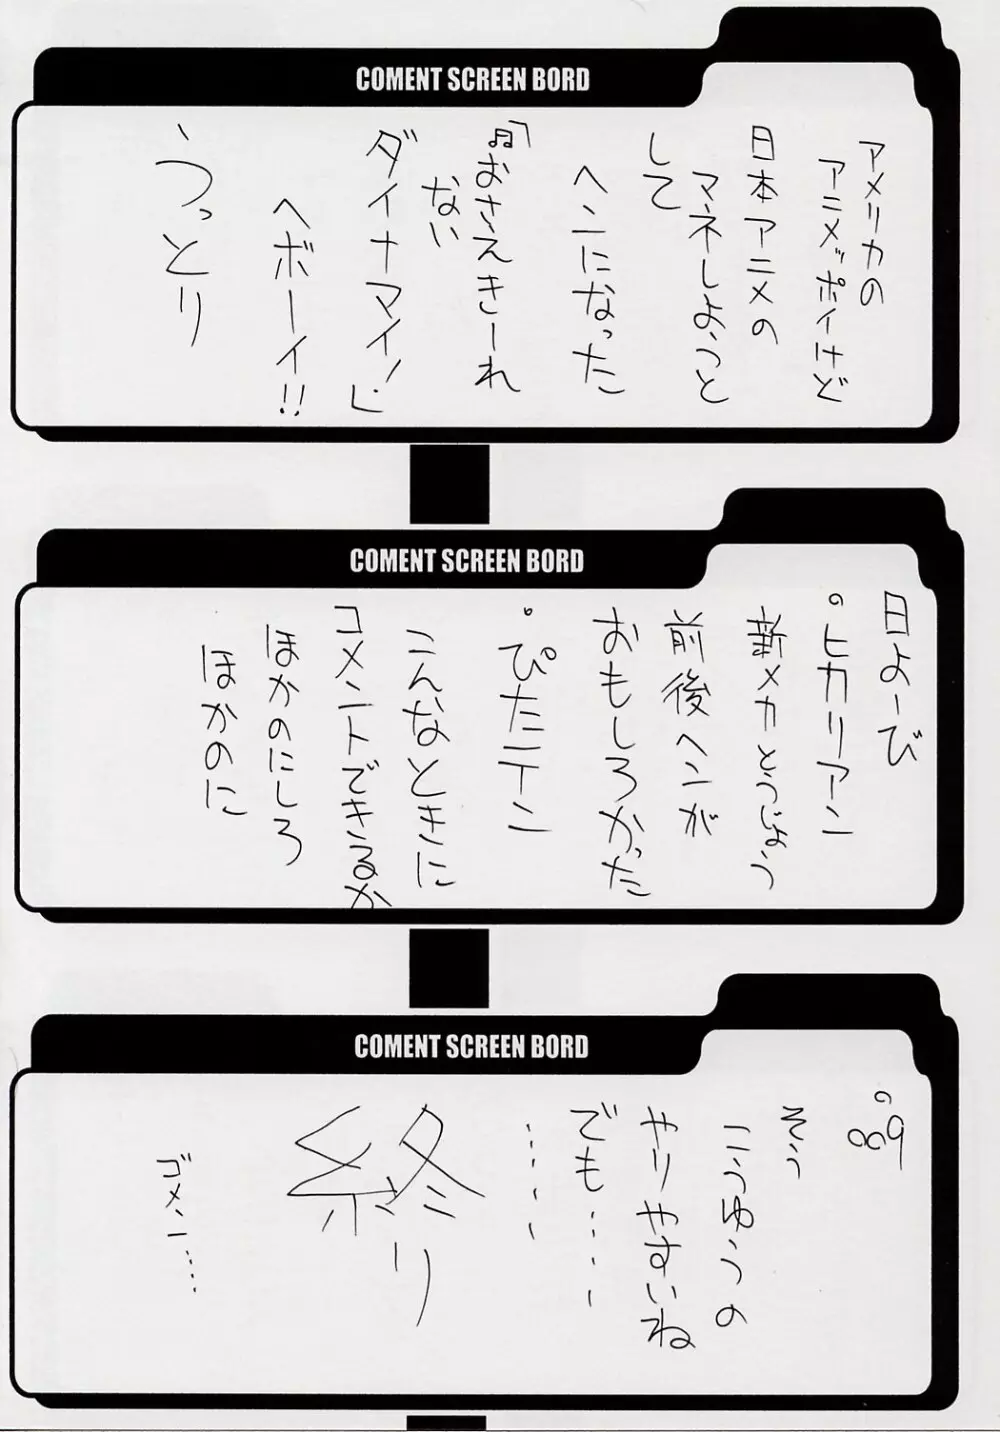 COMENT SCREEN BORD
アメリカの
アニメッポイけど
日本アニメの
マネしようと
して
ヘンになった
「♬おさえきーれ
ない
ダイナマイ!」
ヘボーイ!!
、うっとり
COMENT SCREEN BORD
日よーび
。ヒカリアン
新メカとうじょう
前後ヘンが
おもしろかった
。ぴたテン
こんなときに
コメントできるか
ほかのにしろ
ほかのに
COMENT SCREEN BORD
。889
そう
こうゆうの
やりやすいね
でも……
……
終
ーり
ゴメン……